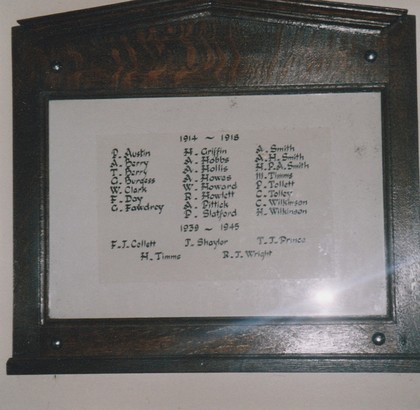 1914 ~ 1918
P. Austin H. Griffin A. Smith
A. Perry A. Hobbs A. H. Smith
T. Perry A. Hollis H. P. A. Smith
G. Burgess A. Howes M. Timms
W. Clark W. Howard P. Tollett
F. Day R. Howlett C. Tolley
G. Fawdroy A. Pittick C. Wilkinson
P. Slatford H. Wilkinson
1939 ~ 1945
F. J. Collett J. Shaylor T. J. Prince
H. Timms R. J. Wright